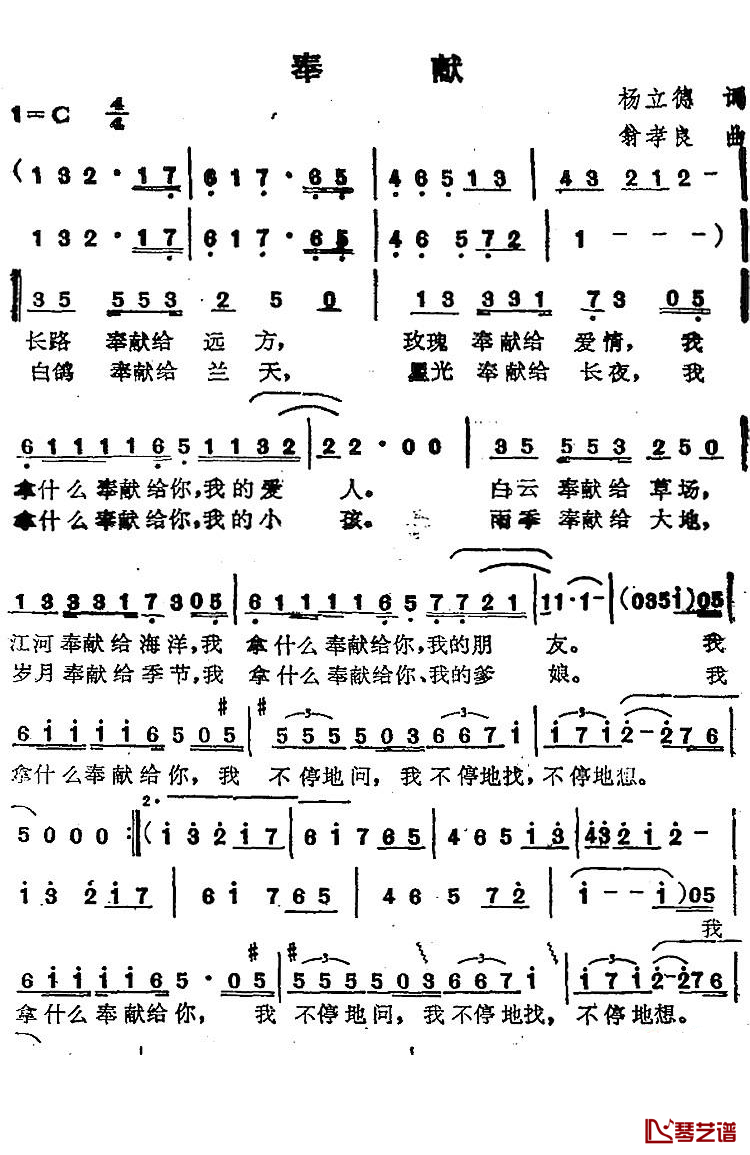 奉 献
1=C 4/4
杨立德 词
翁孝良 曲
(1 3 2 · 1 7 | 6 1 7 · 6 5 | 4 6 5 1 3 | 4 3 2 1 2 - |
1 3 2 · 1 7 | 6 1 7 · 6 5 | 4 6 5 7 2 | 1 - - - )
3 5 5 5 3 2 5 0 | 1 3 3 3 1 7 3 0 5
长路 奉献给 远 方, 玫瑰 奉献给 爱情, 我
白鸽 奉献给 兰 天, 星光 奉献给 长夜, 我
6 1 1 1 1 6 5 1 1 3 2 | 2 2 · 0 0 | 3 5 5 5 3 2 5 0
拿什么奉献给你,我的爱 人。 白云 奉献给 草场,
拿什么奉献给你,我的小 孩。 雨季 奉献给 大地,
1 3 3 3 1 7 3 0 5 | 6 1 1 1 1 6 5 7 7 2 1 | 1 1 · 1 - (0 3 5 1) 0 5
江河奉献给海洋,我 拿什么奉献给你,我的朋 友。 我
岁月奉献给季节,我 拿什么奉献给你、我的爹 娘。 我
6 1 1 1 1 6 5 0 5 | #5 5 5 5 0 3 6 6 7 1 | 1 7 1 2 - 2 7 6
拿什么奉献给你, 我 不停地问, 我不停地找,不停地想。
5 0 0 0 :‖ 2. (1 3 2 1 7 | 6 1 7 6 5 | 4 6 5 1 3 | 4 3 2 1 2 -
1 3 2 1 7 | 6 1 7 6 5 | 4 6 5 7 2 | 1 - - 1) 0 5
我
6 1 1 1 1 6 5 · 0 5 | #5 5 5 5 0 3 6 6 7 1 | 1 7 1 2 - 2 7 6
拿什么奉献给你, 我 不停地问,我不停地找, 不停地想。
琴艺谱